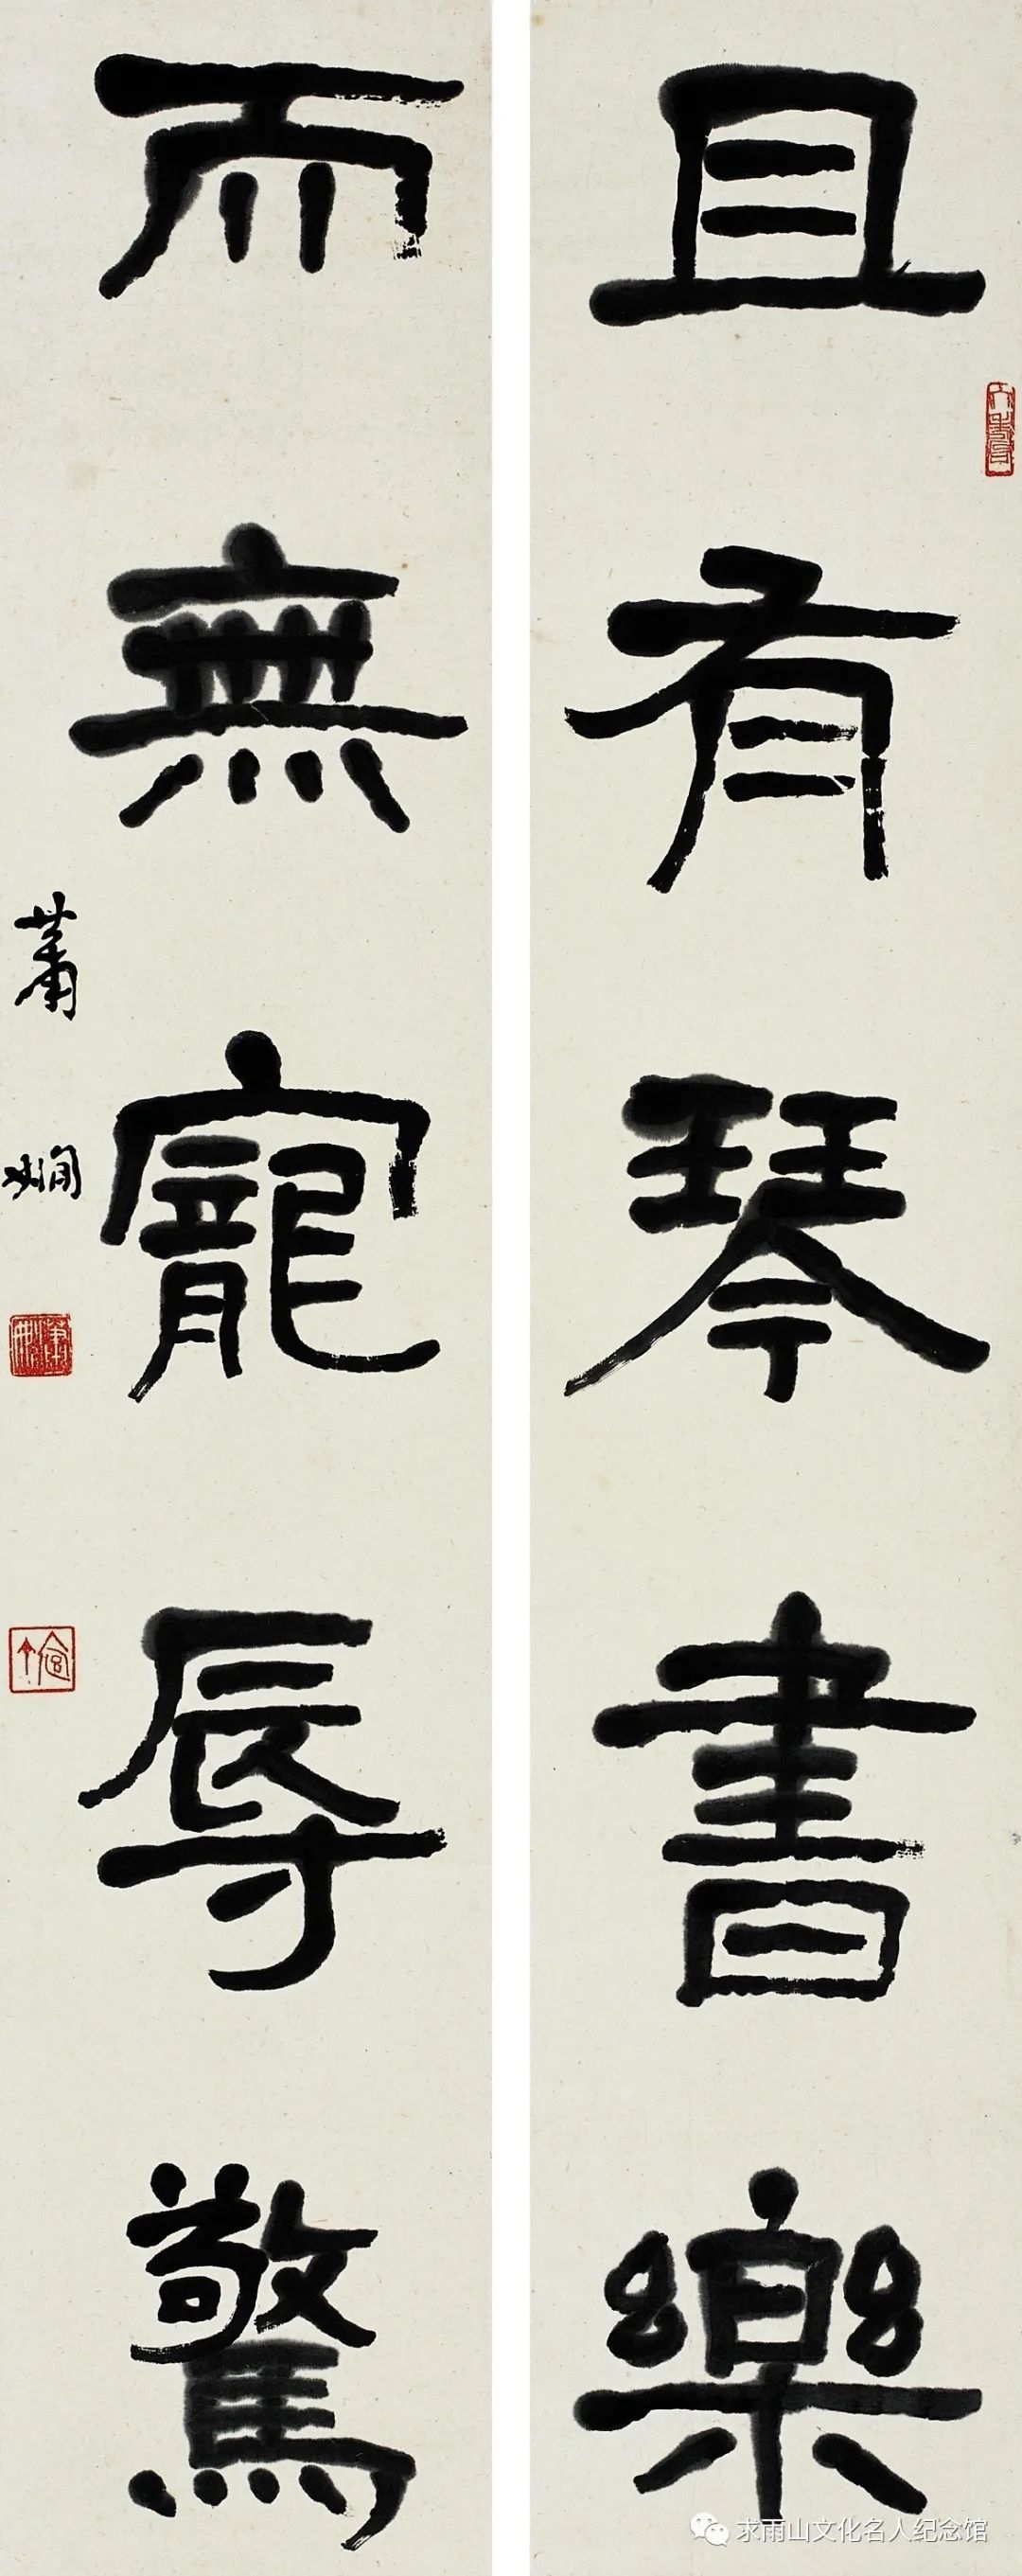 且有琴書樂
而無寵辱驚
蕭嫻
求雨山文化名人纪念馆